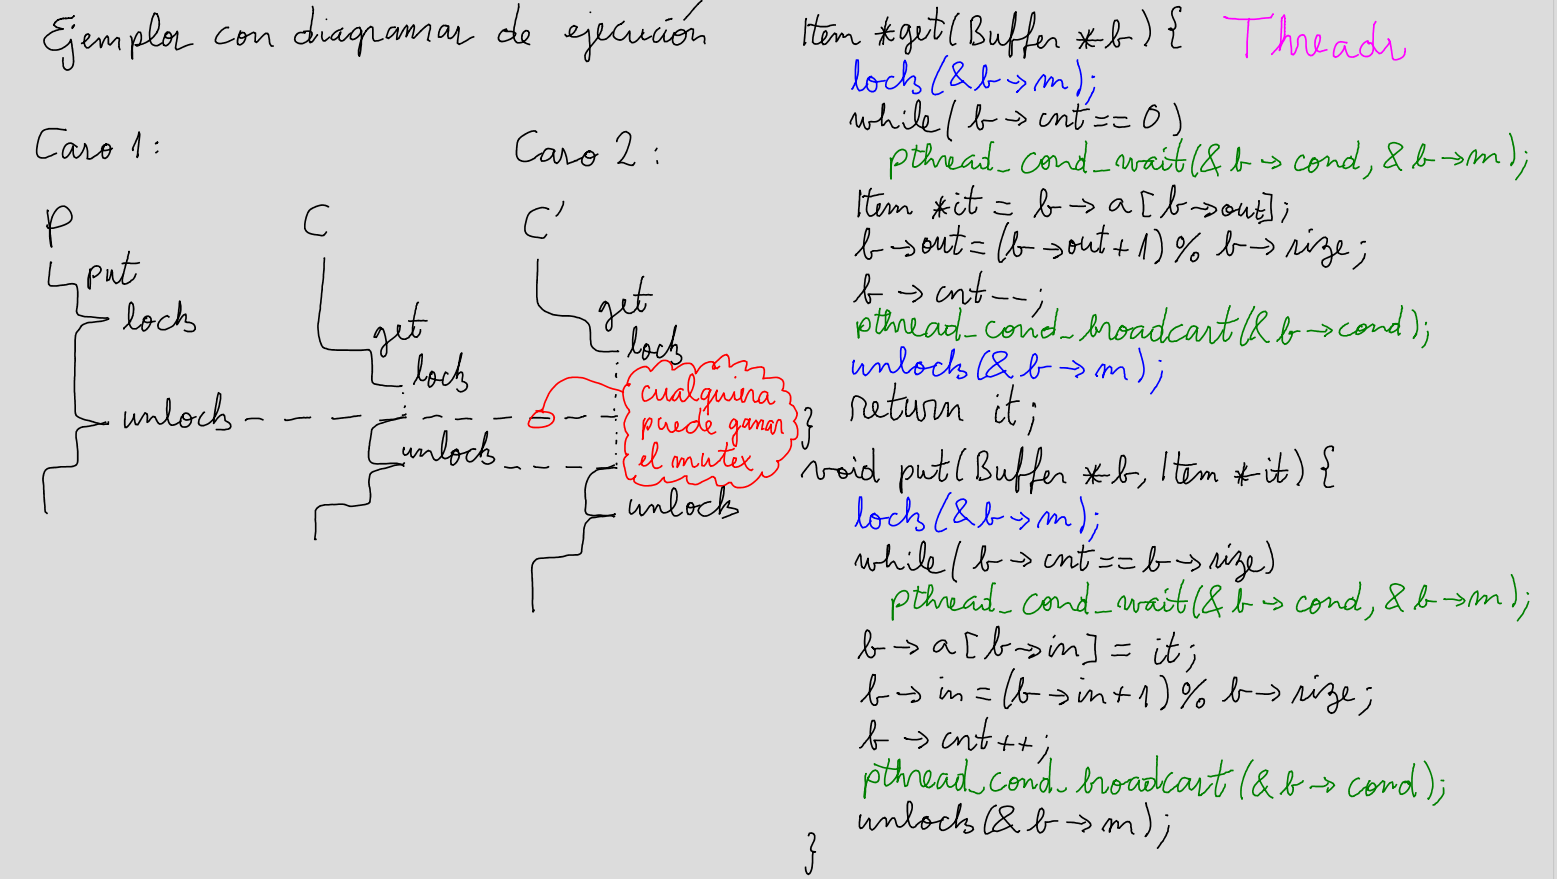 Ejemplos con diagramas de ejecución
Caso 1:
Caso 2:
P
C
C'
put
lock
unlock
get
lock
unlock
get
lock
unlock
cualquiera
puede ganar
el mutex
Threads
Item *get(Buffer *b) {
lock(&b→m);
while( b→cnt==0)
pthread_cond_wait(&b→cond, &b→m);
Item *it = b→a[b→out];
b→out=(b→out+1)% b→size;
b→cnt--;
pthread_cond_broadcast(&b→cond);
unlock(&b→m);
return it;
}
void put(Buffer *b, Item *it) {
lock(&b→m);
while( b→cnt==b→size)
pthread_cond_wait(&b→cond, &b→m);
b→a[b→in] = it;
b→in=(b→in+1)% b→size;
b→cnt++;
pthread_cond_broadcast(&b→cond);
unlock(&b→m);
}